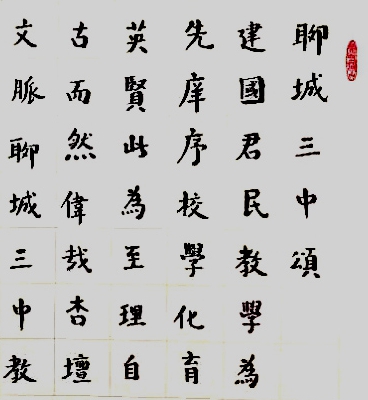 聊城三中頌
建國君民教學為
先庠序校學化育
英賢此為至理自
古而然偉哉杏壇
文脈聊城三中教